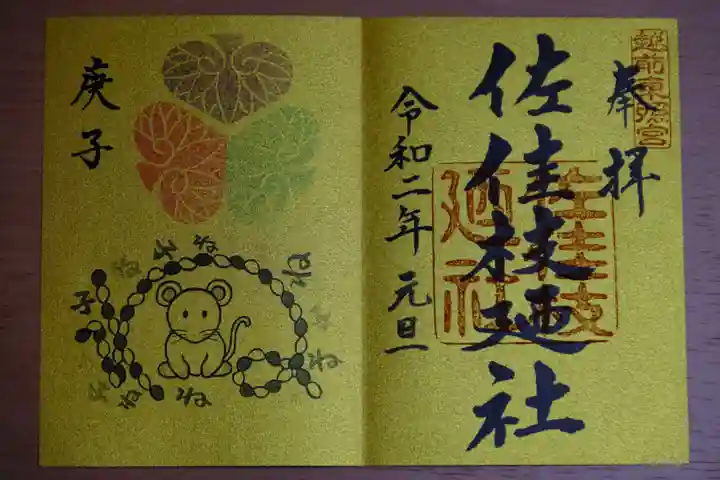 越前東照宮
奉拝
佐佳枝廼社
佐佳枝
廼社
令和二年 元旦
庚子
ね
ね
子
ね
ね
ね